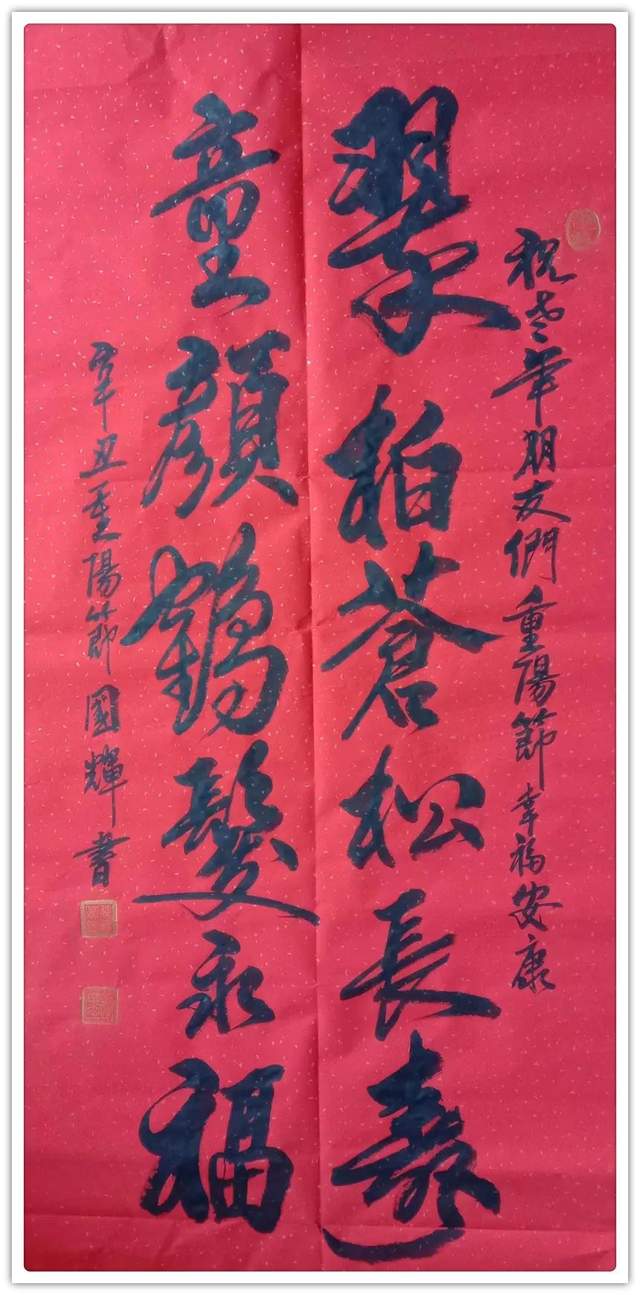 祝老年朋友們重陽節幸福安康
翠柏蒼松長壽
童顔鶴髮永福
辛丑重陽節國輝書